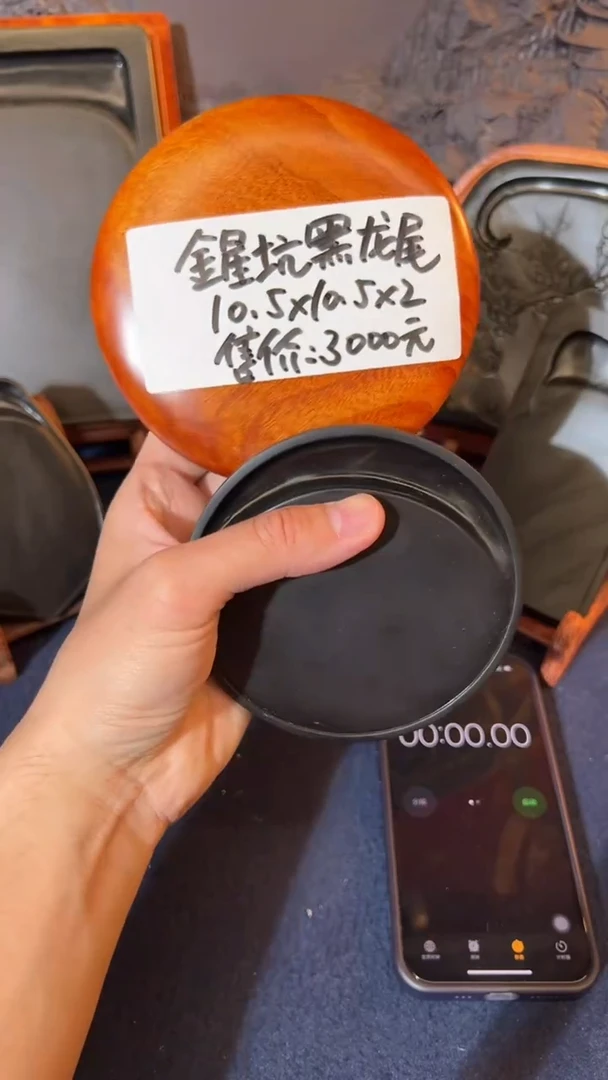 金星坑黑龙尾
10.5x10.5x2
售价:3000元
00:00.00